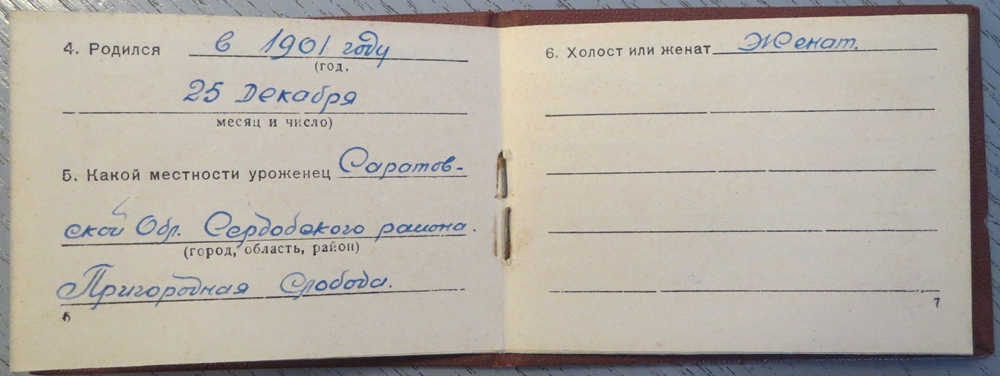 4. Родился в 1901 году
(год,
25 Декабря
месяц и число)
5. Какой местности уроженец Саратов-
ской Обл. Сердобского района.
(город, область, район)
Пригородная Слобода.
6
6. Холост или женат Женат.
7